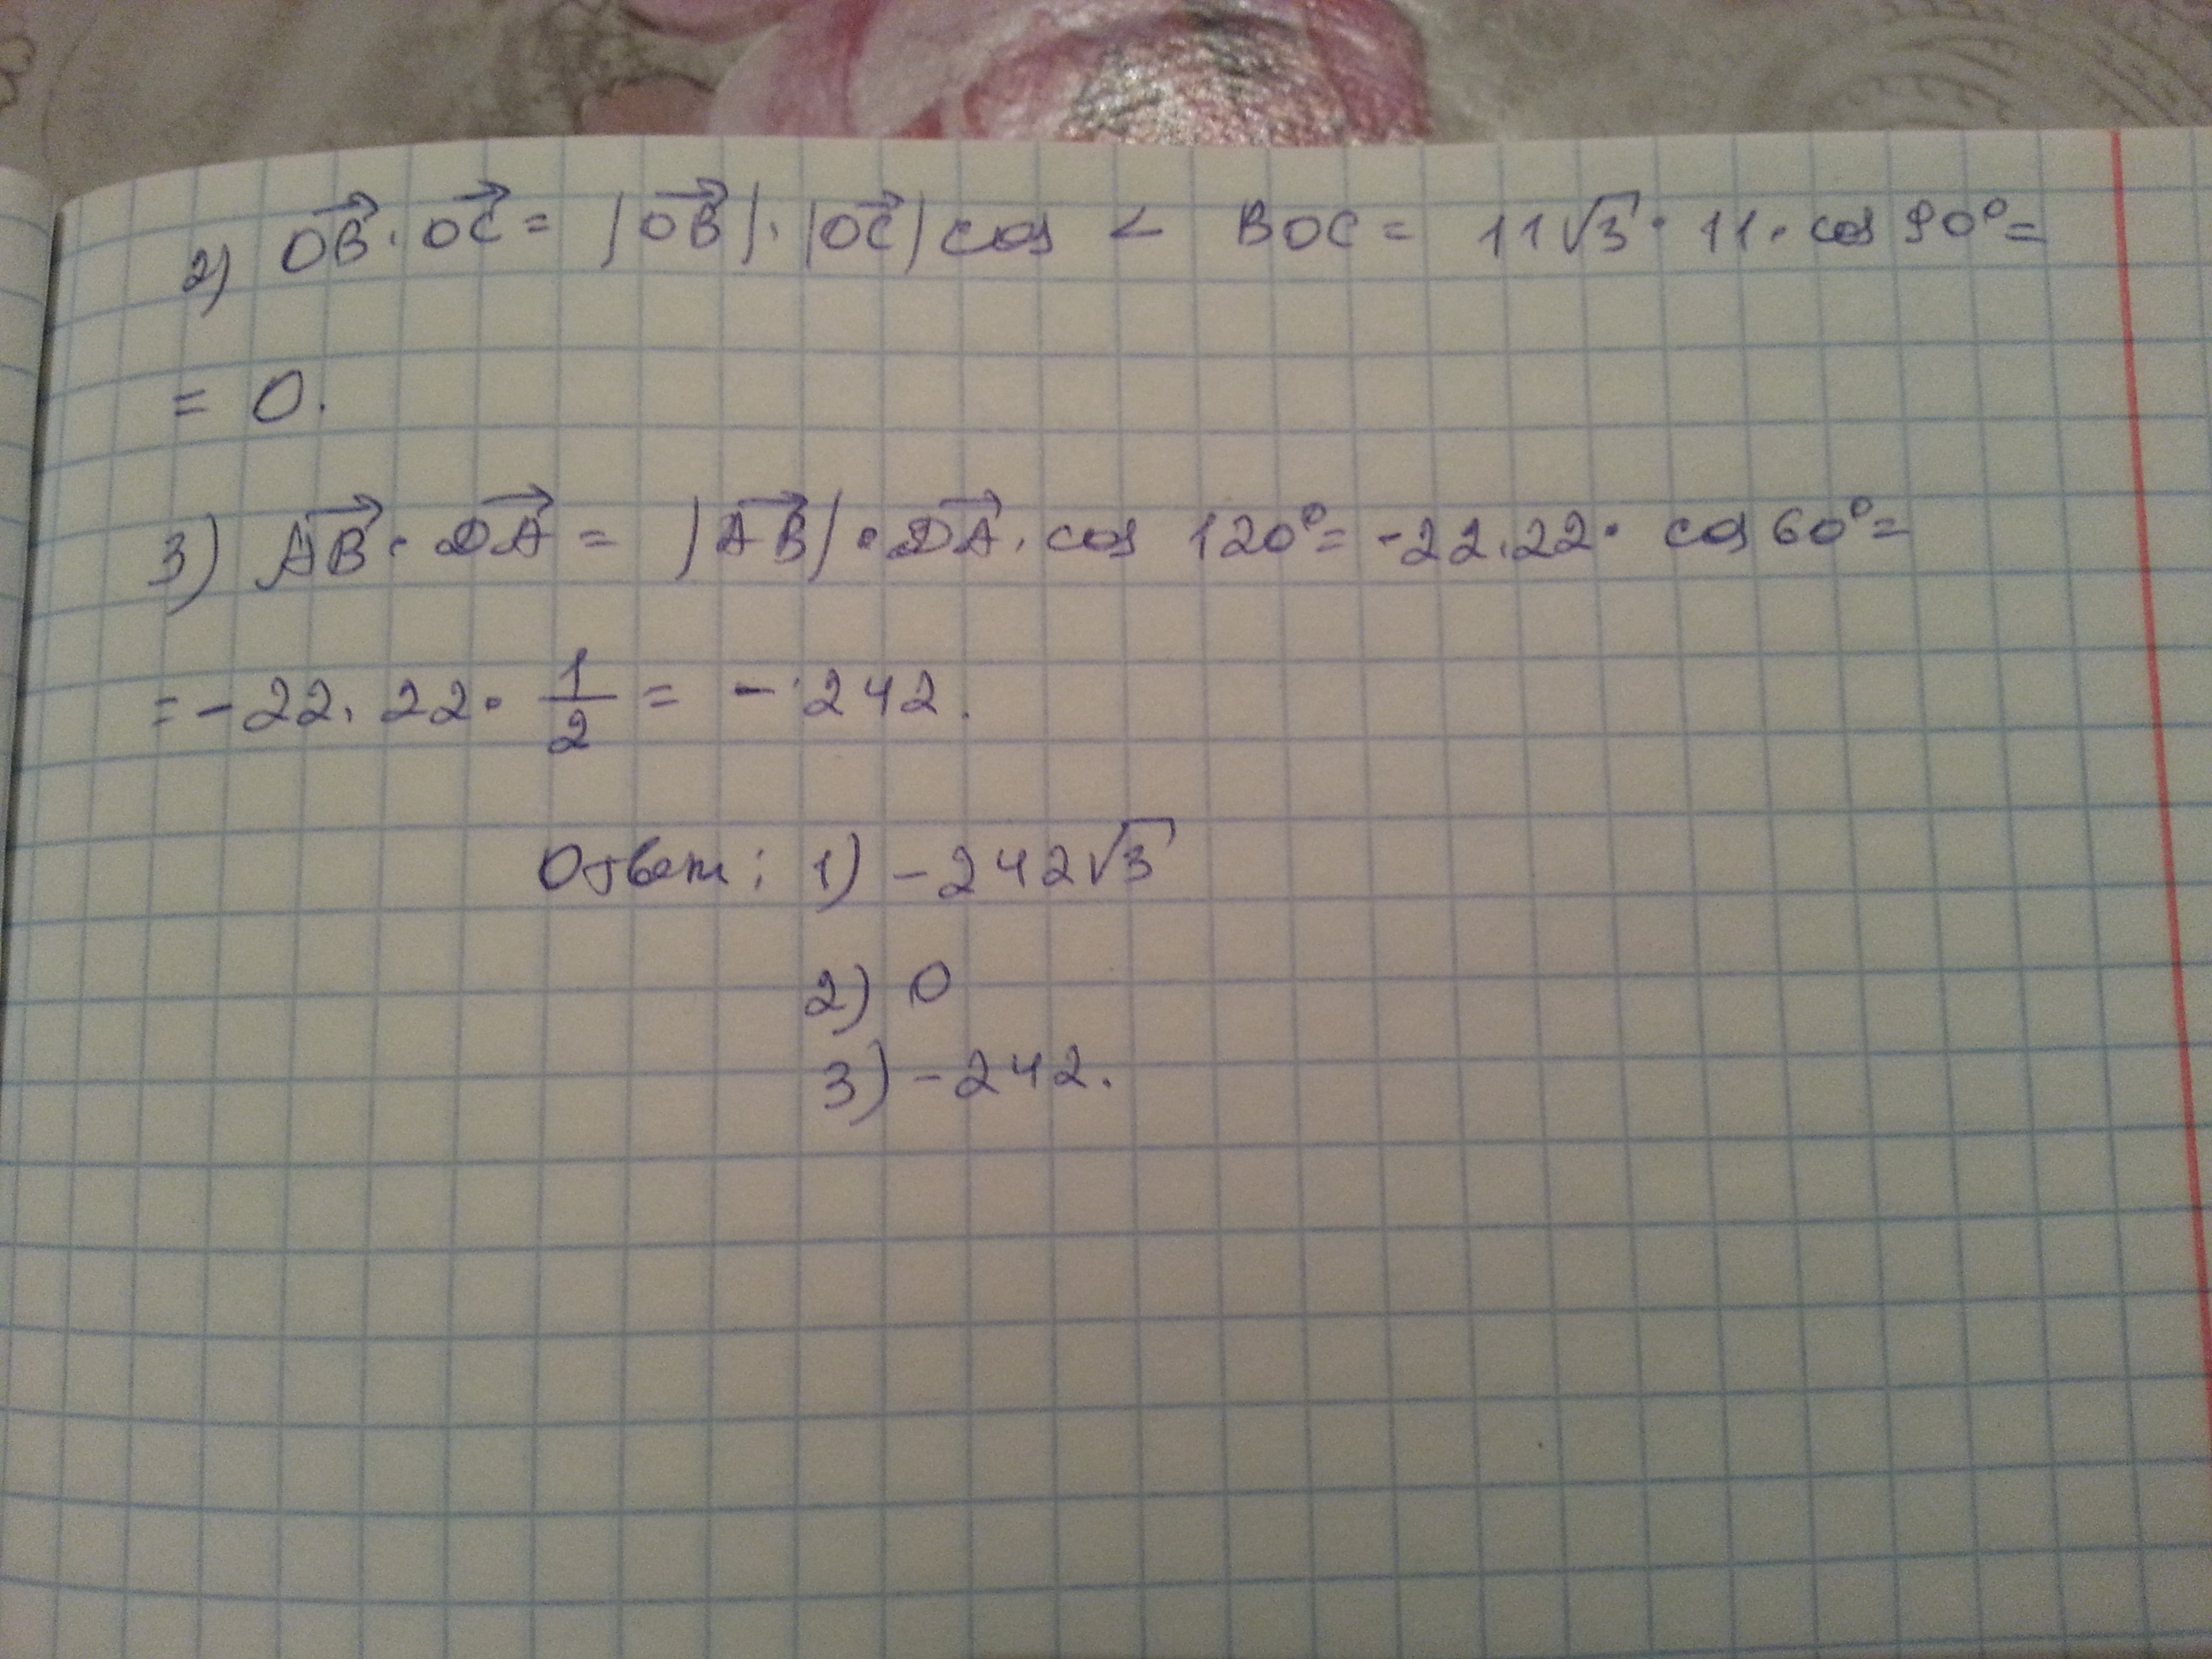 2) OB⃗ · OC⃗ = |OB⃗| · |OC⃗| cos < BOC = 11√3 · 11 · cos 90° =
= 0.
3) AB⃗ · DA⃗ = |AB⃗| · DA⃗ · cos 120° = -22 · 22 · cos 60° =
= -22 · 22 · 1/2 = - 242.
Ответ: 1) -242√3
2) 0
3) -242.